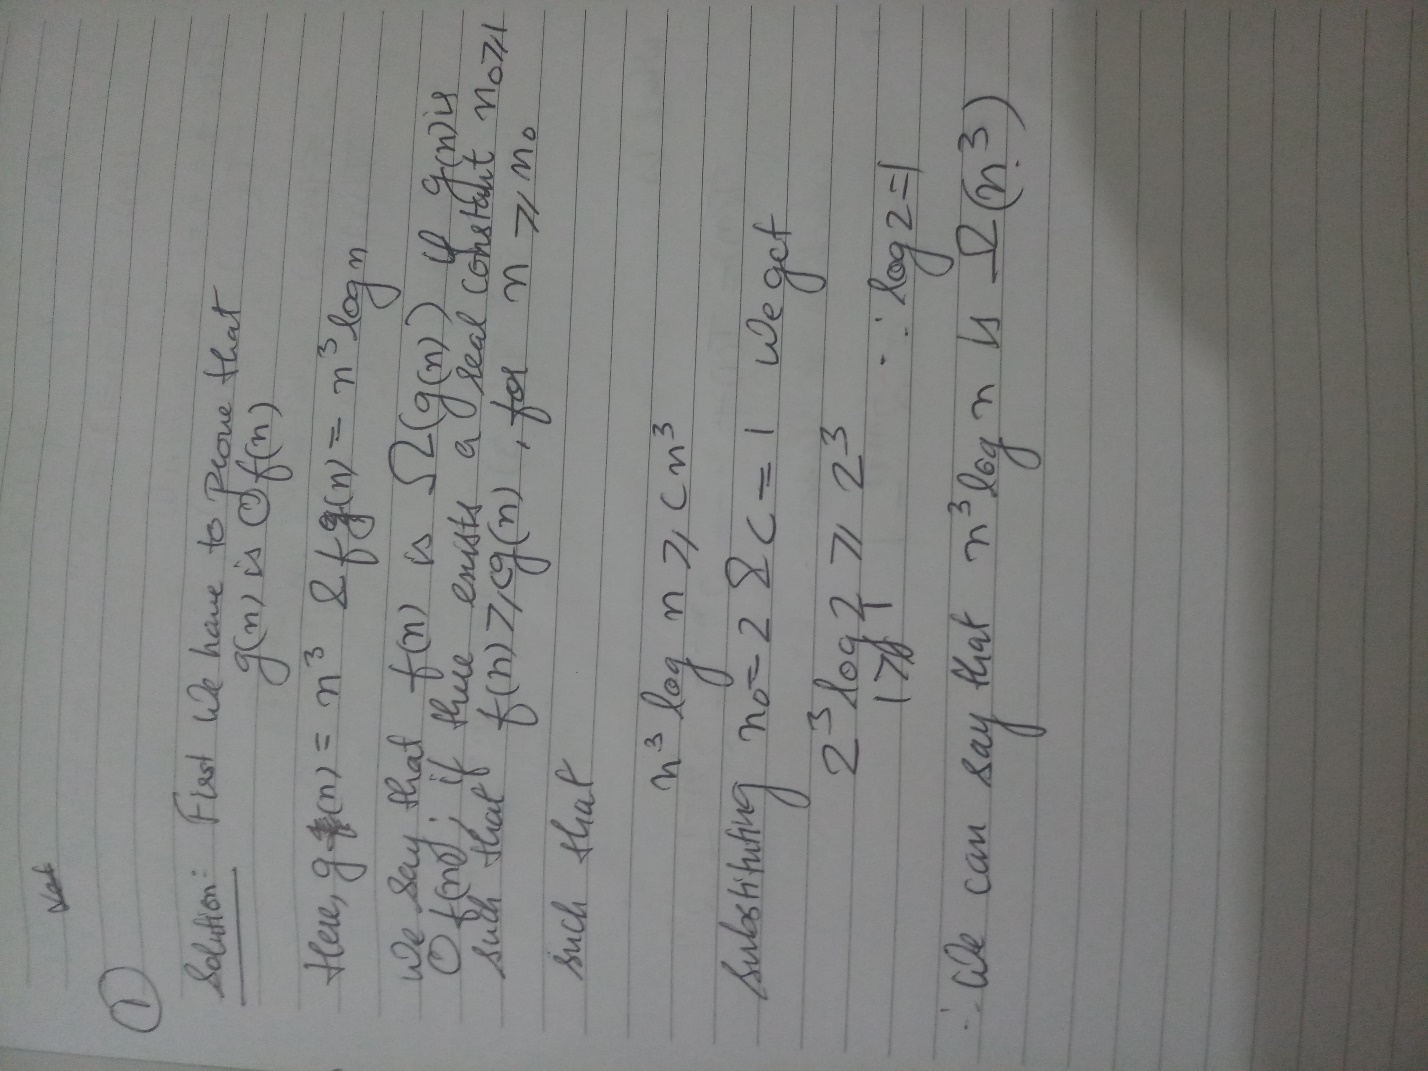 ①
Solution:- First We have to prove that
g(n) is O f(n)
Here, g(n) = n³ & f(n) = n³ log n
We say that f(n) is Ω(g(n)) if g(n) is
O f(n), if there exists a real constant n₀⩾1
such that f(n) ⩾ cg(n), for n ⩾ n₀
such that
n³ log n ⩾ cn³
Substituting n₀ = 2 & c = 1 we get
2³ log 2 ⩾ 2³
1 ⩾ 1 ∵ log 2 = 1
∴ We can say that n³ log n is Ω(n³)